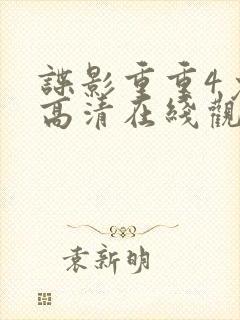 諜影重重4
高清在綫觀
袁新明